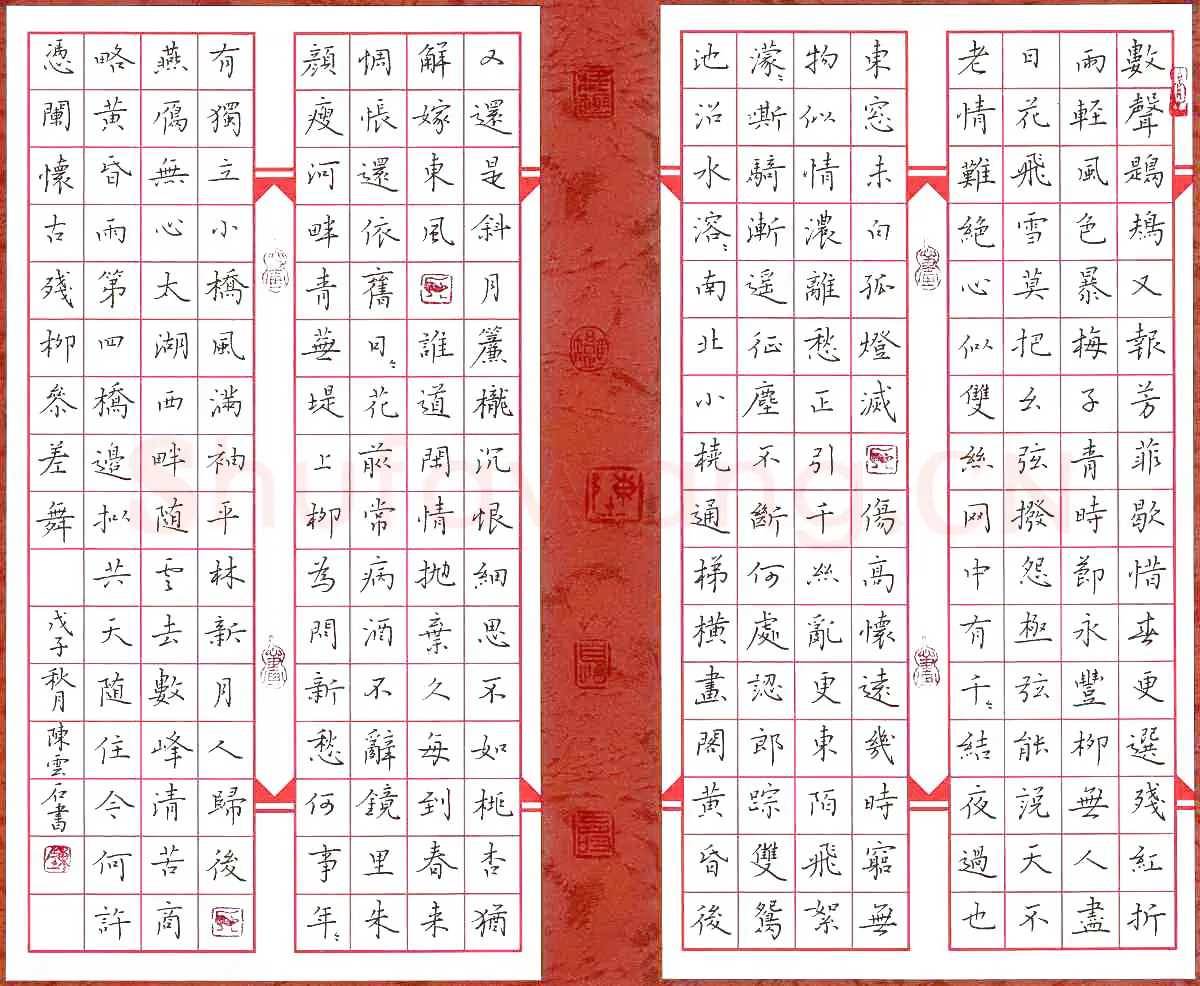 數聲鶗鴂又報芳菲歇惜春更選殘紅折
雨輕風色暴梅子青時節永豐柳無人盡
日花飛雪莫把幺弦撥怨極弦能説天不
老情難絕心似雙絲网中有千〻結夜過也
東窓未白孤燈滅傷高懷遠幾時窮無
物似情濃離愁正引千絲亂更東陌飛絮
濛〻嘶騎漸遥征塵不斷何處認郎踪雙鴛
池沿水溶〻南北小橈通梯橫畫閣黃昏後
又還是斜月簾櫳沉恨細思不如桃杏猶
解嫁東風誰道閑情抛棄久每到春来
惆悵還依舊日〻花前常病酒不辭鏡里朱
顏瘦河畔青蕪堤上柳為問新愁何事年〻
有獨立小橋風滿袖平林新月人歸後
燕鴈無心太湖西畔随雲去數峰清苦商
略黃昏雨第四橋邊拟共天随住今何許
憑闌懷古殘柳參差舞
戊子秋月陳雲石書
Shufawang.CN